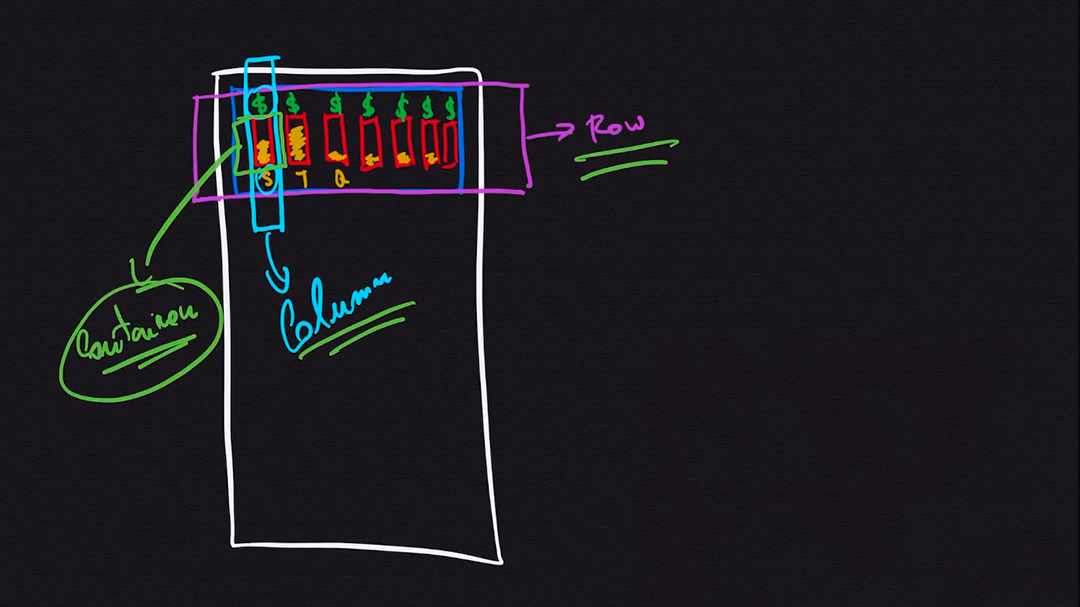 $ $ $ $ $ $ $
S T Q
Row
Column
Container